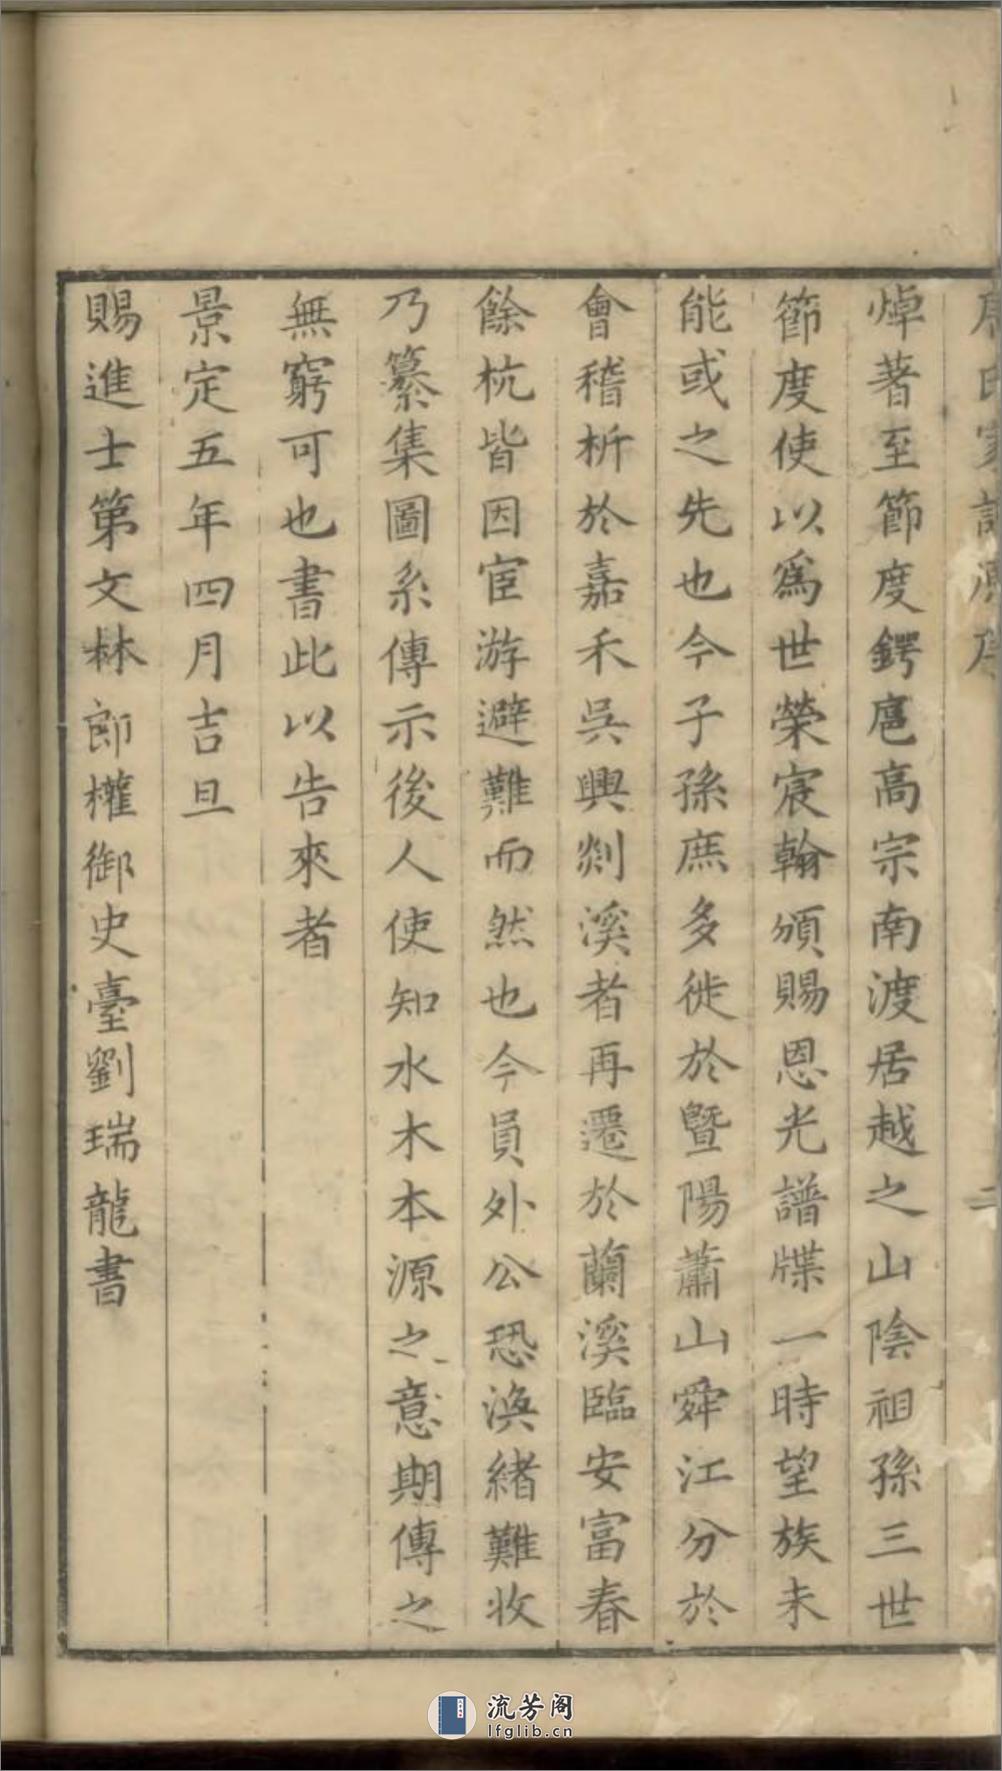 焯著至節度鍔扈高宗南渡居越之山陰祖孫三世
節度使以爲世榮宸翰頒賜恩光譜牒一時望族未
能或之先也今子孫庶多徙於暨陽蕭山舜江分於
會稽析於嘉禾吳興剡溪者再遷於蘭溪臨安富春
餘杭皆因宦游避難而然也今員外公恐渙緒難收
乃纂集圖系傳示後人使知水木本源之意期傳之
無窮可也書此以告來者
景定五年四月吉旦
賜進士第文林郎權御史臺劉瑞龍書
流芳阁
lfglib.cn